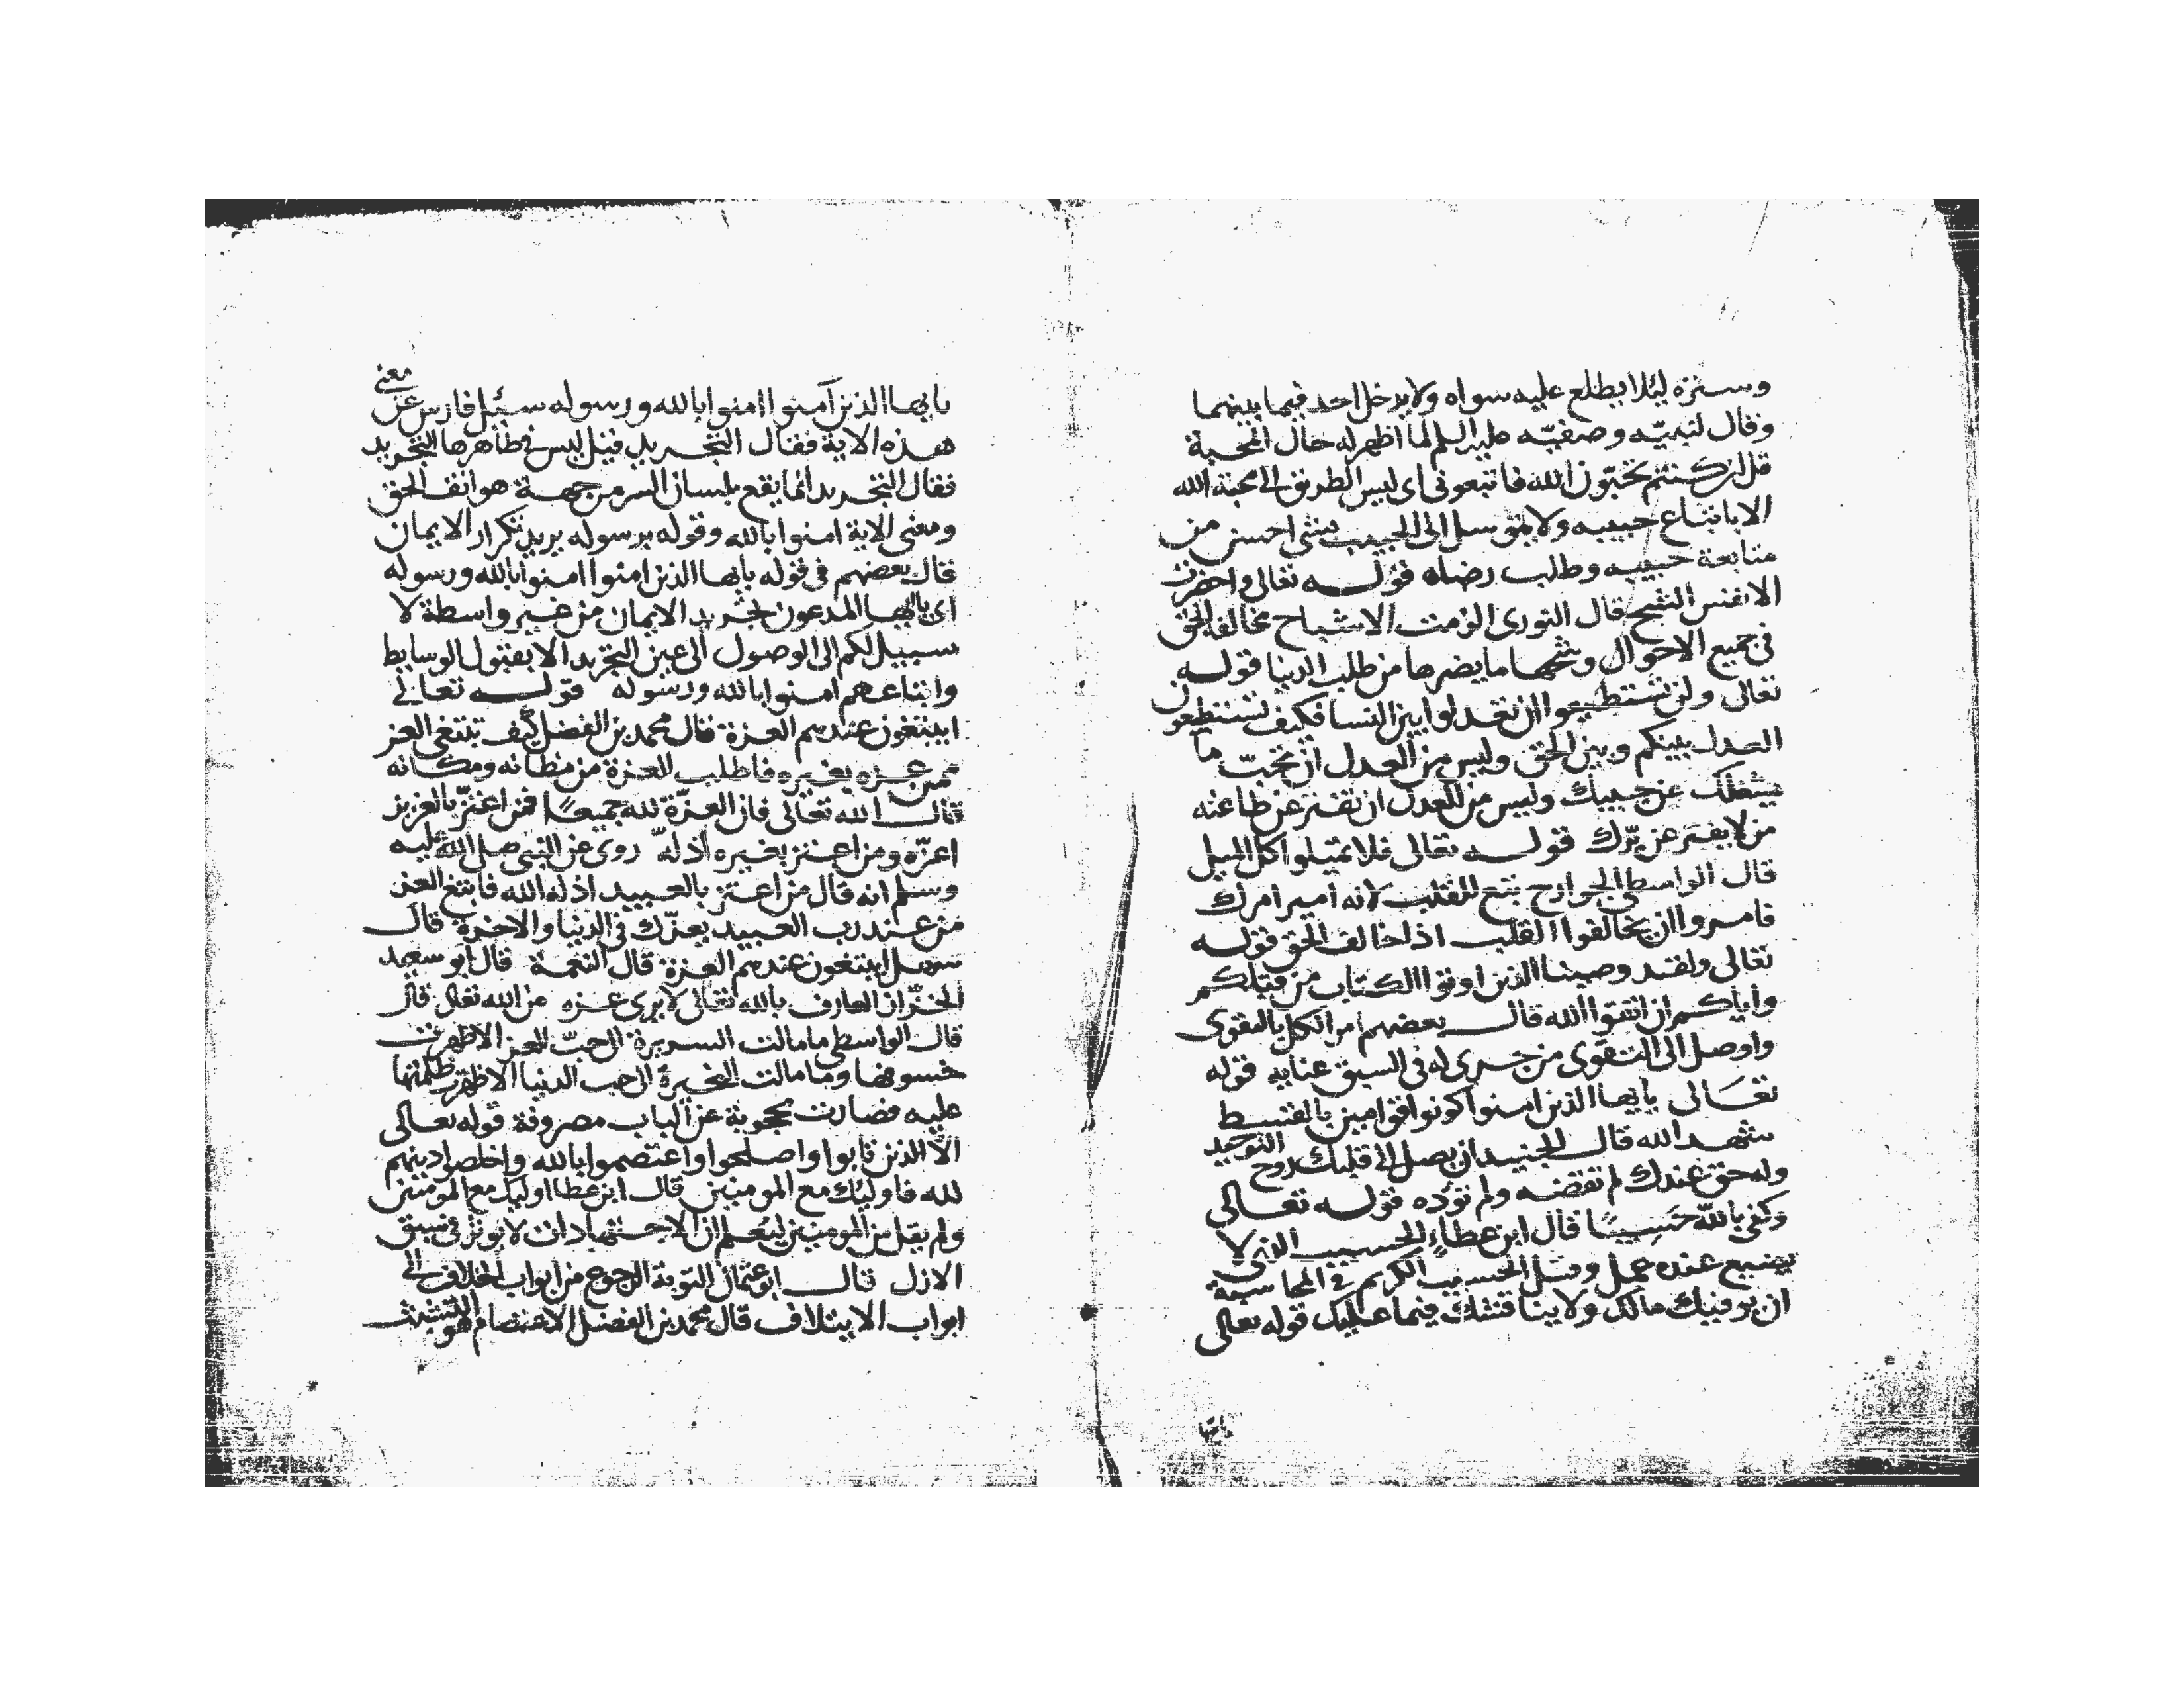 وستره ليلا يطلع عليه سواه ولا يدخل احد فيما بينهما
وقال لنبيّه وصفيّه عليه السلم لما اظهر له حال المحبة
قل ان كنتم تحبّون الله فاتبعونى اى ليس الطريق الى محبة الله
الا باتباع حبيبه ولا يتوسل الى الحبيب بشى احسن من
متابعة حبيبه وطلب رضاه قولـه تعالى واحضرت
الانفس الشح قال النورى الزمت الاشباح مخالفة الحق
فى جميع الاحوال وشحها ما يضرها من طلب الدنيا قولـه
تعالى ولن تستطيعوا ان تعدلوا بين النسا فكيف تستطيعون
العدل بينكم وبين الحق وليس من العدل ان تحبّ ما
يشغلك عن حبيبك وليس من العدل ان تفتر عن طاعته
من لا يفتر عن برّك قولـه تعالى فلا تميلوا كل الميل
قال الواسطى الجوارح تتبع للقلب لانه امير امرك
فامروا ان يخالفوا القلب اذا خالف الحق قولـه
تعالى ولقد وصينا الذين اوتوا الكتاب من قبلكم
واياكم ان اتقوا الله قال بعضهم امر الكل بالتقوى
واوصل الى التقوى من جرى له فى السبق عنايه قوله
تعالى يايها الذين امنوا كونوا قوامين بالقسط
شهدا لله قال الجنيد ان يصل الى قلبك روح التوحيد
وله حق عندك لم تقضه ولم تؤده قولـه تعالى
وكفى بالله حسيبًا قال ابن عطاء الحسيب الذى لا
يضيع عنده عمل وقيل الحسيب الكريم فى المحاسبة
ان يوفيك مالك ولا يناقشك فيما عليك قوله تعالى
يايها
يايها الذين آمنوا امنوا بالله ورسوله سئل فارس عن معنى
هذه الاية فقال التجريد قيل ليس فى ظاهرها التجريد
فقال التجريد انما يقع بلسان السر من جهة هواتف الحق
ومعنى الاية امنوا بالله وقوله برسوله يريد تكرار الايمان
قال بعضهم فى قوله يايها الذين امنوا امنوا بالله ورسوله
اى يايها المدعون تجريد الايمان من غير واسطة لا
سبيل لكم الى الوصول الى عين التجريد الا بقبول الوسايط
واتباعهم امنوا بالله ورسوله قولـه تعالى
ايبتغون عندهم العزة قال محمد بن الفضل كيف تبتغى العز
ممن عزه بغيره فاطلب العزة من مظانه ومكانه
قال الله تعالى فان العزّة لله جميعًا فمن اعتزّ بالعزيز
اعزّه ومن اعتز بغيره اذلّه روى عن النبى صلى الله عليه
وسلم انه قال من اعتز بالعبيد اذله الله فابتغ العز
من عند رب العبيد يعزّك فى الدنيا والاخرة قال
سهل ايبتغون عندهم العزة قال النتيجة قال ابو سعيد
الخرّاز العارف بالله تعالى لا يرى عزه من الله تعالى قال
قال الواسطى ما مالت السريرة الى حبّ العز الا ظهرت
خسوفها وما مالت البخيرة الى حب الدنيا الا ظهرت ظلمتها
عليه فصارت محجوبة عن الباب مصروفة قوله تعالى
الا الذين تابوا واصلحوا واعتصموا بالله واخلصوا دينهم
لله فاوليك مع المومنين قال ابن عطا اوليك مع المومنين
ولم يقل من المومنين ليعلم ان الاجتهادات لا يوثر فى سبق
الازل قال ابو عثمان التوبة الرجوع من ابواب الخلاف الى
ابواب الايتلاف قال محمد بن الفضل الاعتصام هو التشبث